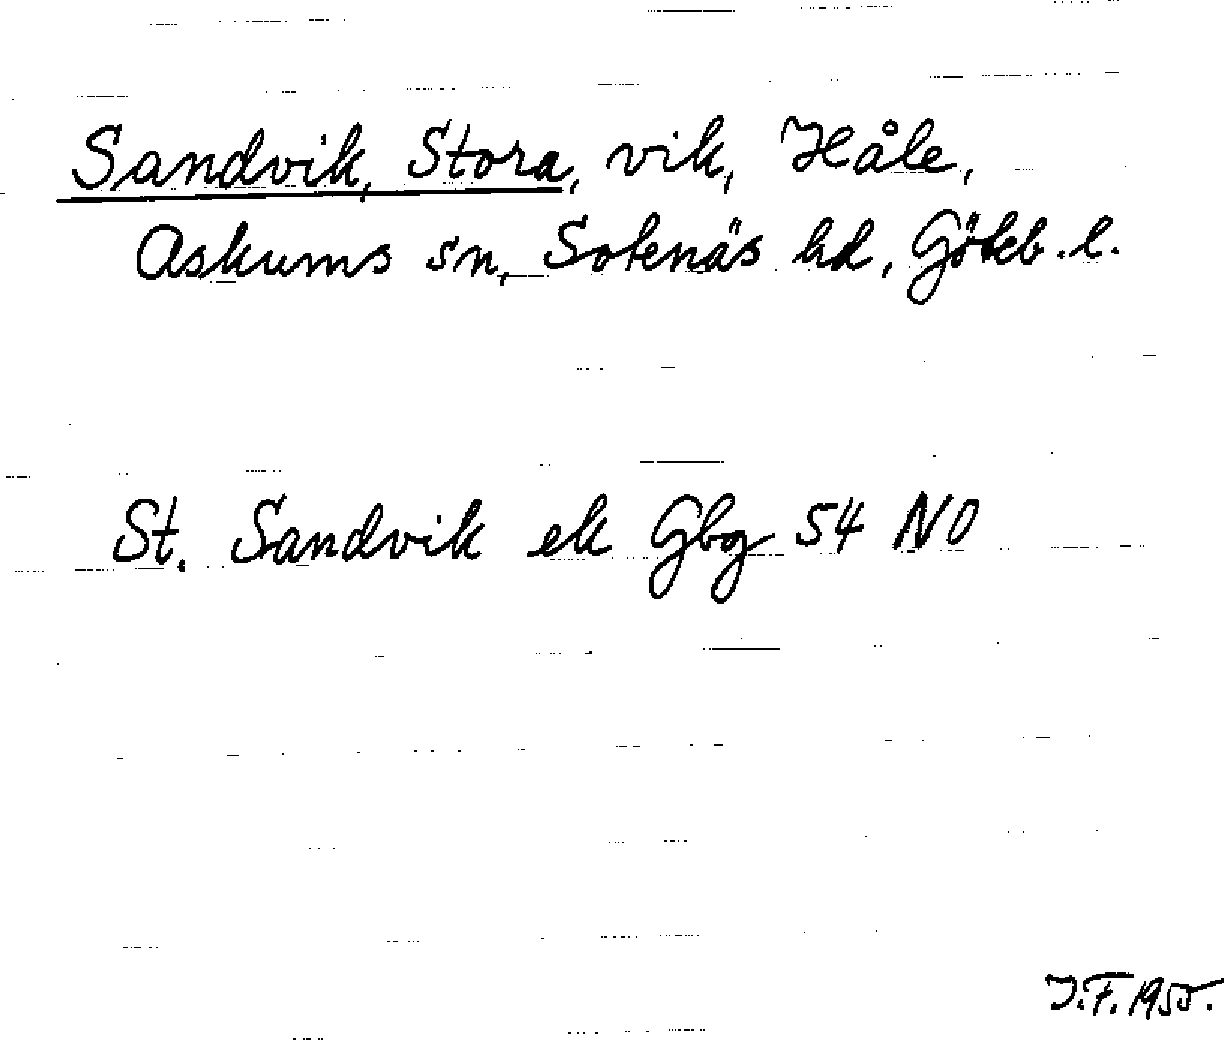 Sandvik, Stora, vik, Håle,
Askums sn, Sotenäs hd, Göteb. l.
St. Sandvik ek Gbg 54 NO
J.F. 1955.